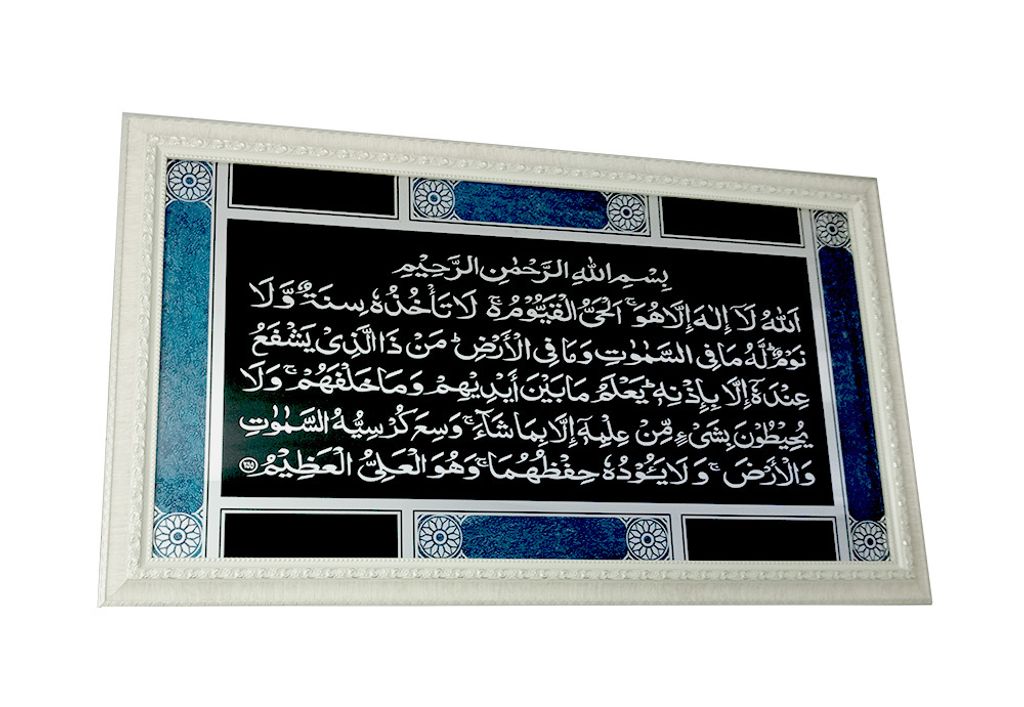 بِسْمِ اللهِ الرَّحْمٰنِ الرَّحِيْمِ
اَللهُ لَآ إِلٰهَ إِلَّا هُوَ ۚ اَلْحَيُّ الْقَيُّوْمُ ۚ لَا تَأْخُذُهٗ سِنَةٌ وَّلَا
نَوْمٌ ؕ لَّهٗ مَا فِى السَّمٰوٰتِ وَمَا فِى الْأَرْضِ ؕ مَنْ ذَا الَّذِىْ يَشْفَعُ
عِنْدَهٗ إِلَّا بِإِذْنِهٖ ؕ يَعْلَمُ مَا بَيْنَ أَيْدِيْهِمْ وَمَا خَلْفَهُمْ ۚ وَلَا
يُحِيْطُوْنَ بِشَىْءٍ مِّنْ عِلْمِهٖٓ إِلَّا بِمَا شَآءَ ۚ وَسِعَ كُرْسِيُّهُ السَّمٰوٰتِ
وَالْأَرْضَ ۚ وَلَا يَـُٔوْدُهٗ حِفْظُهُمَا ۚ وَهُوَ الْعَلِىُّ الْعَظِيْمُ ٢٥٥